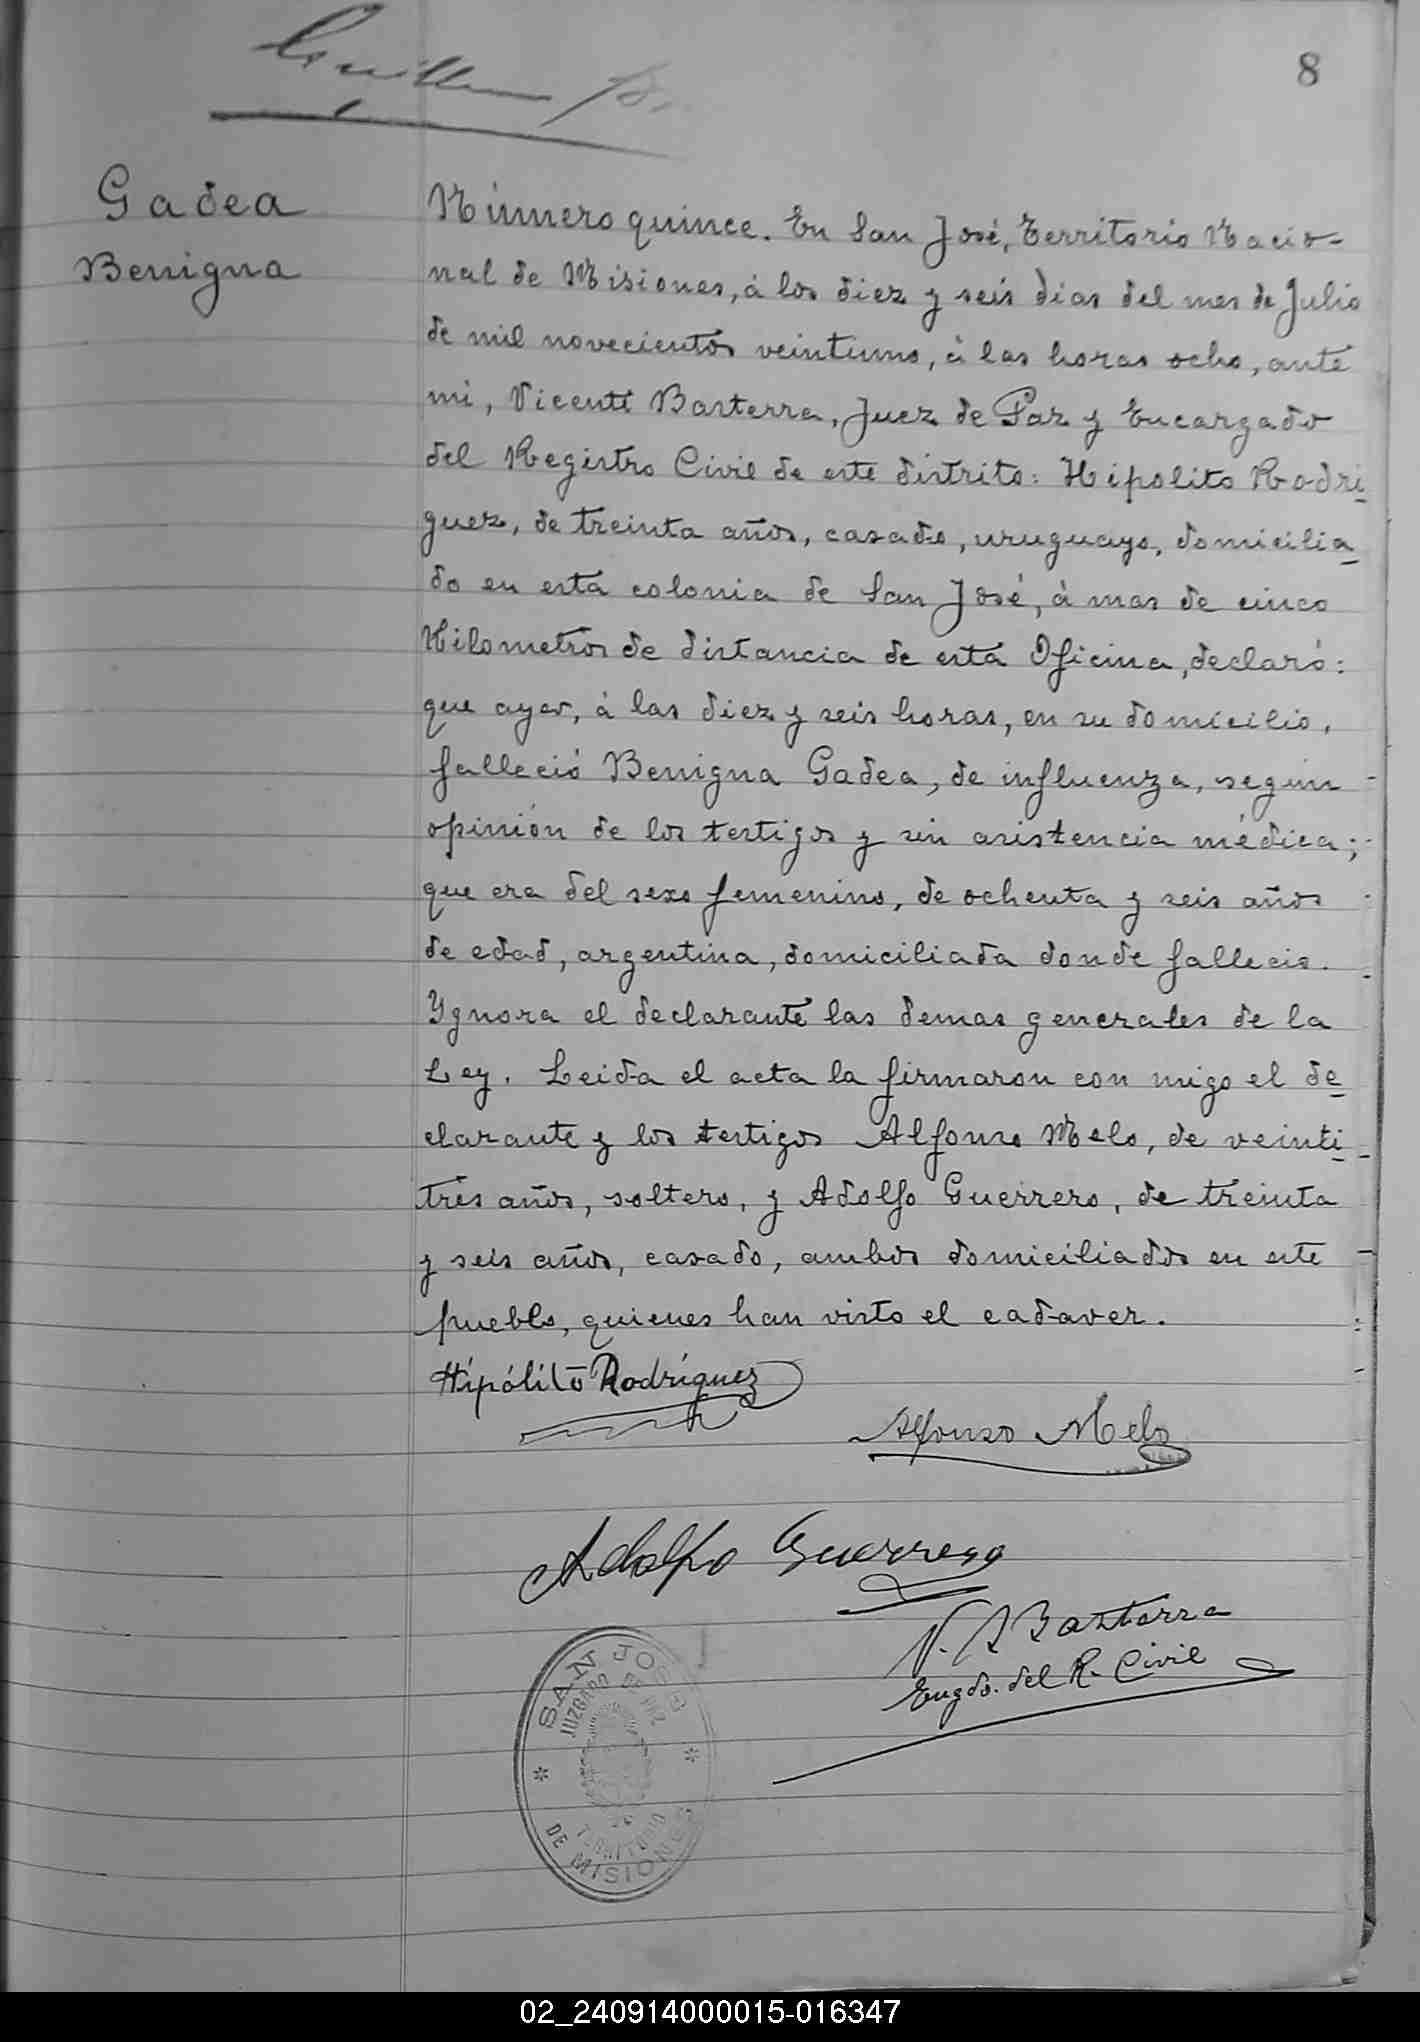 8
Gadea
Benigna
Número quince. En San José, Territorio Nacio-
nal de Misiones, á los diez y seis dias del mes de Julio
de mil novecientos veintiuno, á las horas ocho, ante
mi, Vicente Basterra, Juez de Paz y Encargado
del Registro Civil de este distrito: Hipolito Rodri
guez, de treinta años, casado, uruguayo, domicilia
do en esta colonia de San José, á mas de cinco
Kilometros de distancia de esta Oficina, declaró:
que ayer, á las diez y seis horas, en su domicilio,
falleció Benigna Gadea, de influenza, según
opinión de los testigos y sin asistencia médica;
que era del sexo femenino, de ochenta y seis años
de edad, argentina, domiciliada donde fallecio.
Ygnora el declarante las demas generales de la
Ley. Leida el acta la firmaron con migo el de
clarante y los testigos Alfonso Melo, de veinti
trés años, soltero, y Adolfo Guerrero, de treinta
y seis años, casado, ambos domiciliados en este
pueblo, quienes han visto el cadaver.
Hipólito Rodríguez
Alfonso Melo
Adolfo Guerrero
V. Basterra
Engdo. del R. Civil
SAN JOSÉ
JUZGADO DE PAZ
TERRITORIO
DE MISIONES
02_240914000015-016347